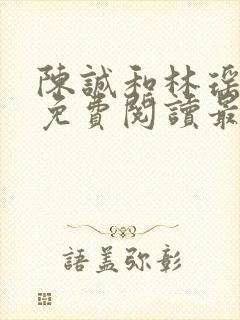 陳誠和林瑤
免費閱讀最
語蓋弥彰